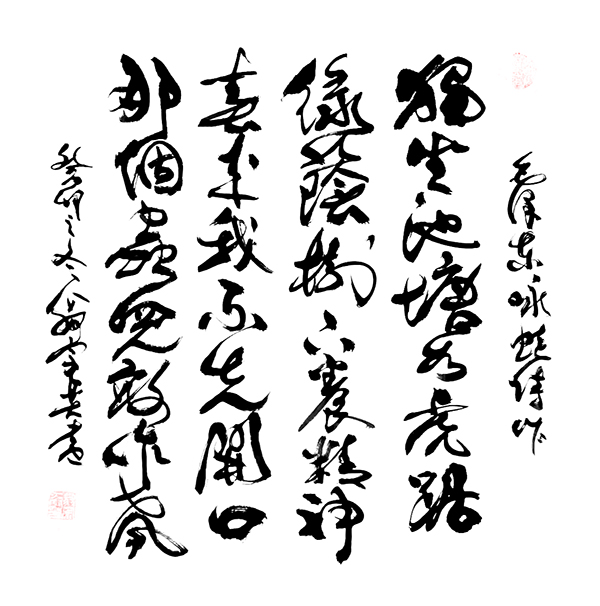 毛澤東咏蛙詩作
獨坐池塘如虎踞
綠蔭樹下養精神
春來我不先開口
那個蟲兒敢作聲
癸卯之冬